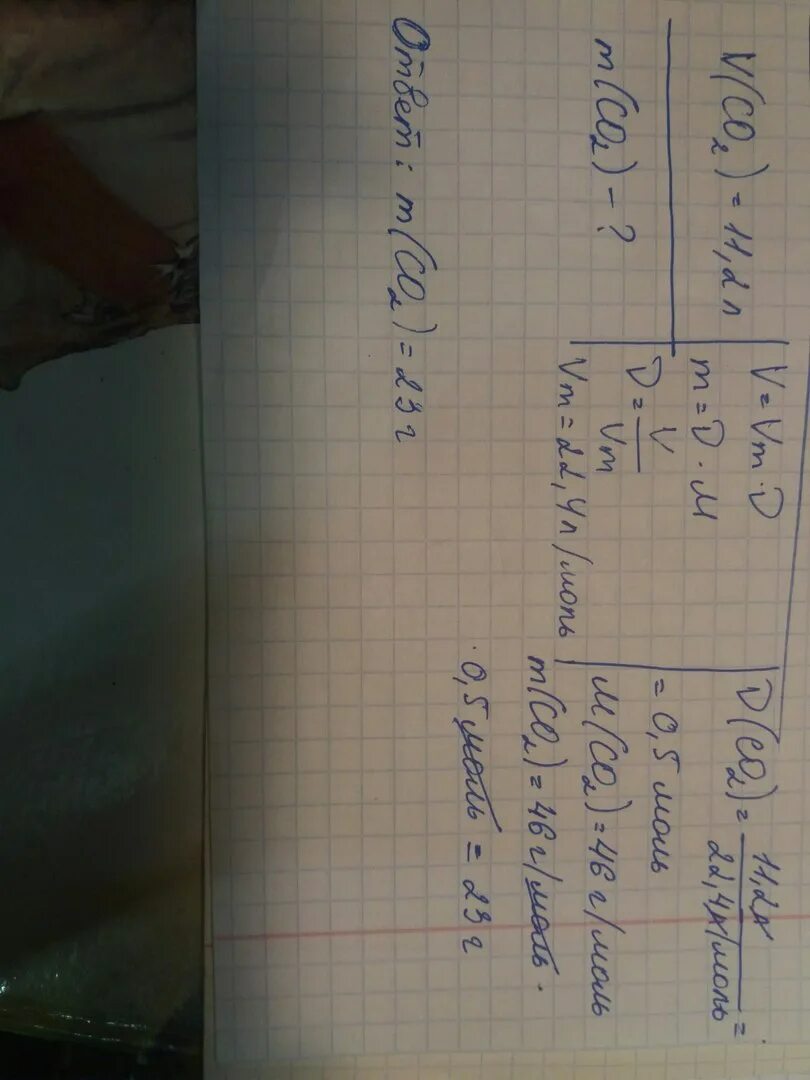 V(CO₂) = 11,2 л
m(CO₂) - ?
V = Vm · D
m = D · M
D = V / Vm
Vm = 22,4 л/моль
D(CO₂) = 11,2 л / 22,4 л/моль =
= 0,5 моль
M(CO₂) = 46 г/моль
m(CO₂) = 46 г/моль ·
· 0,5 моль = 23 г
Ответ: m(CO₂) = 23 г